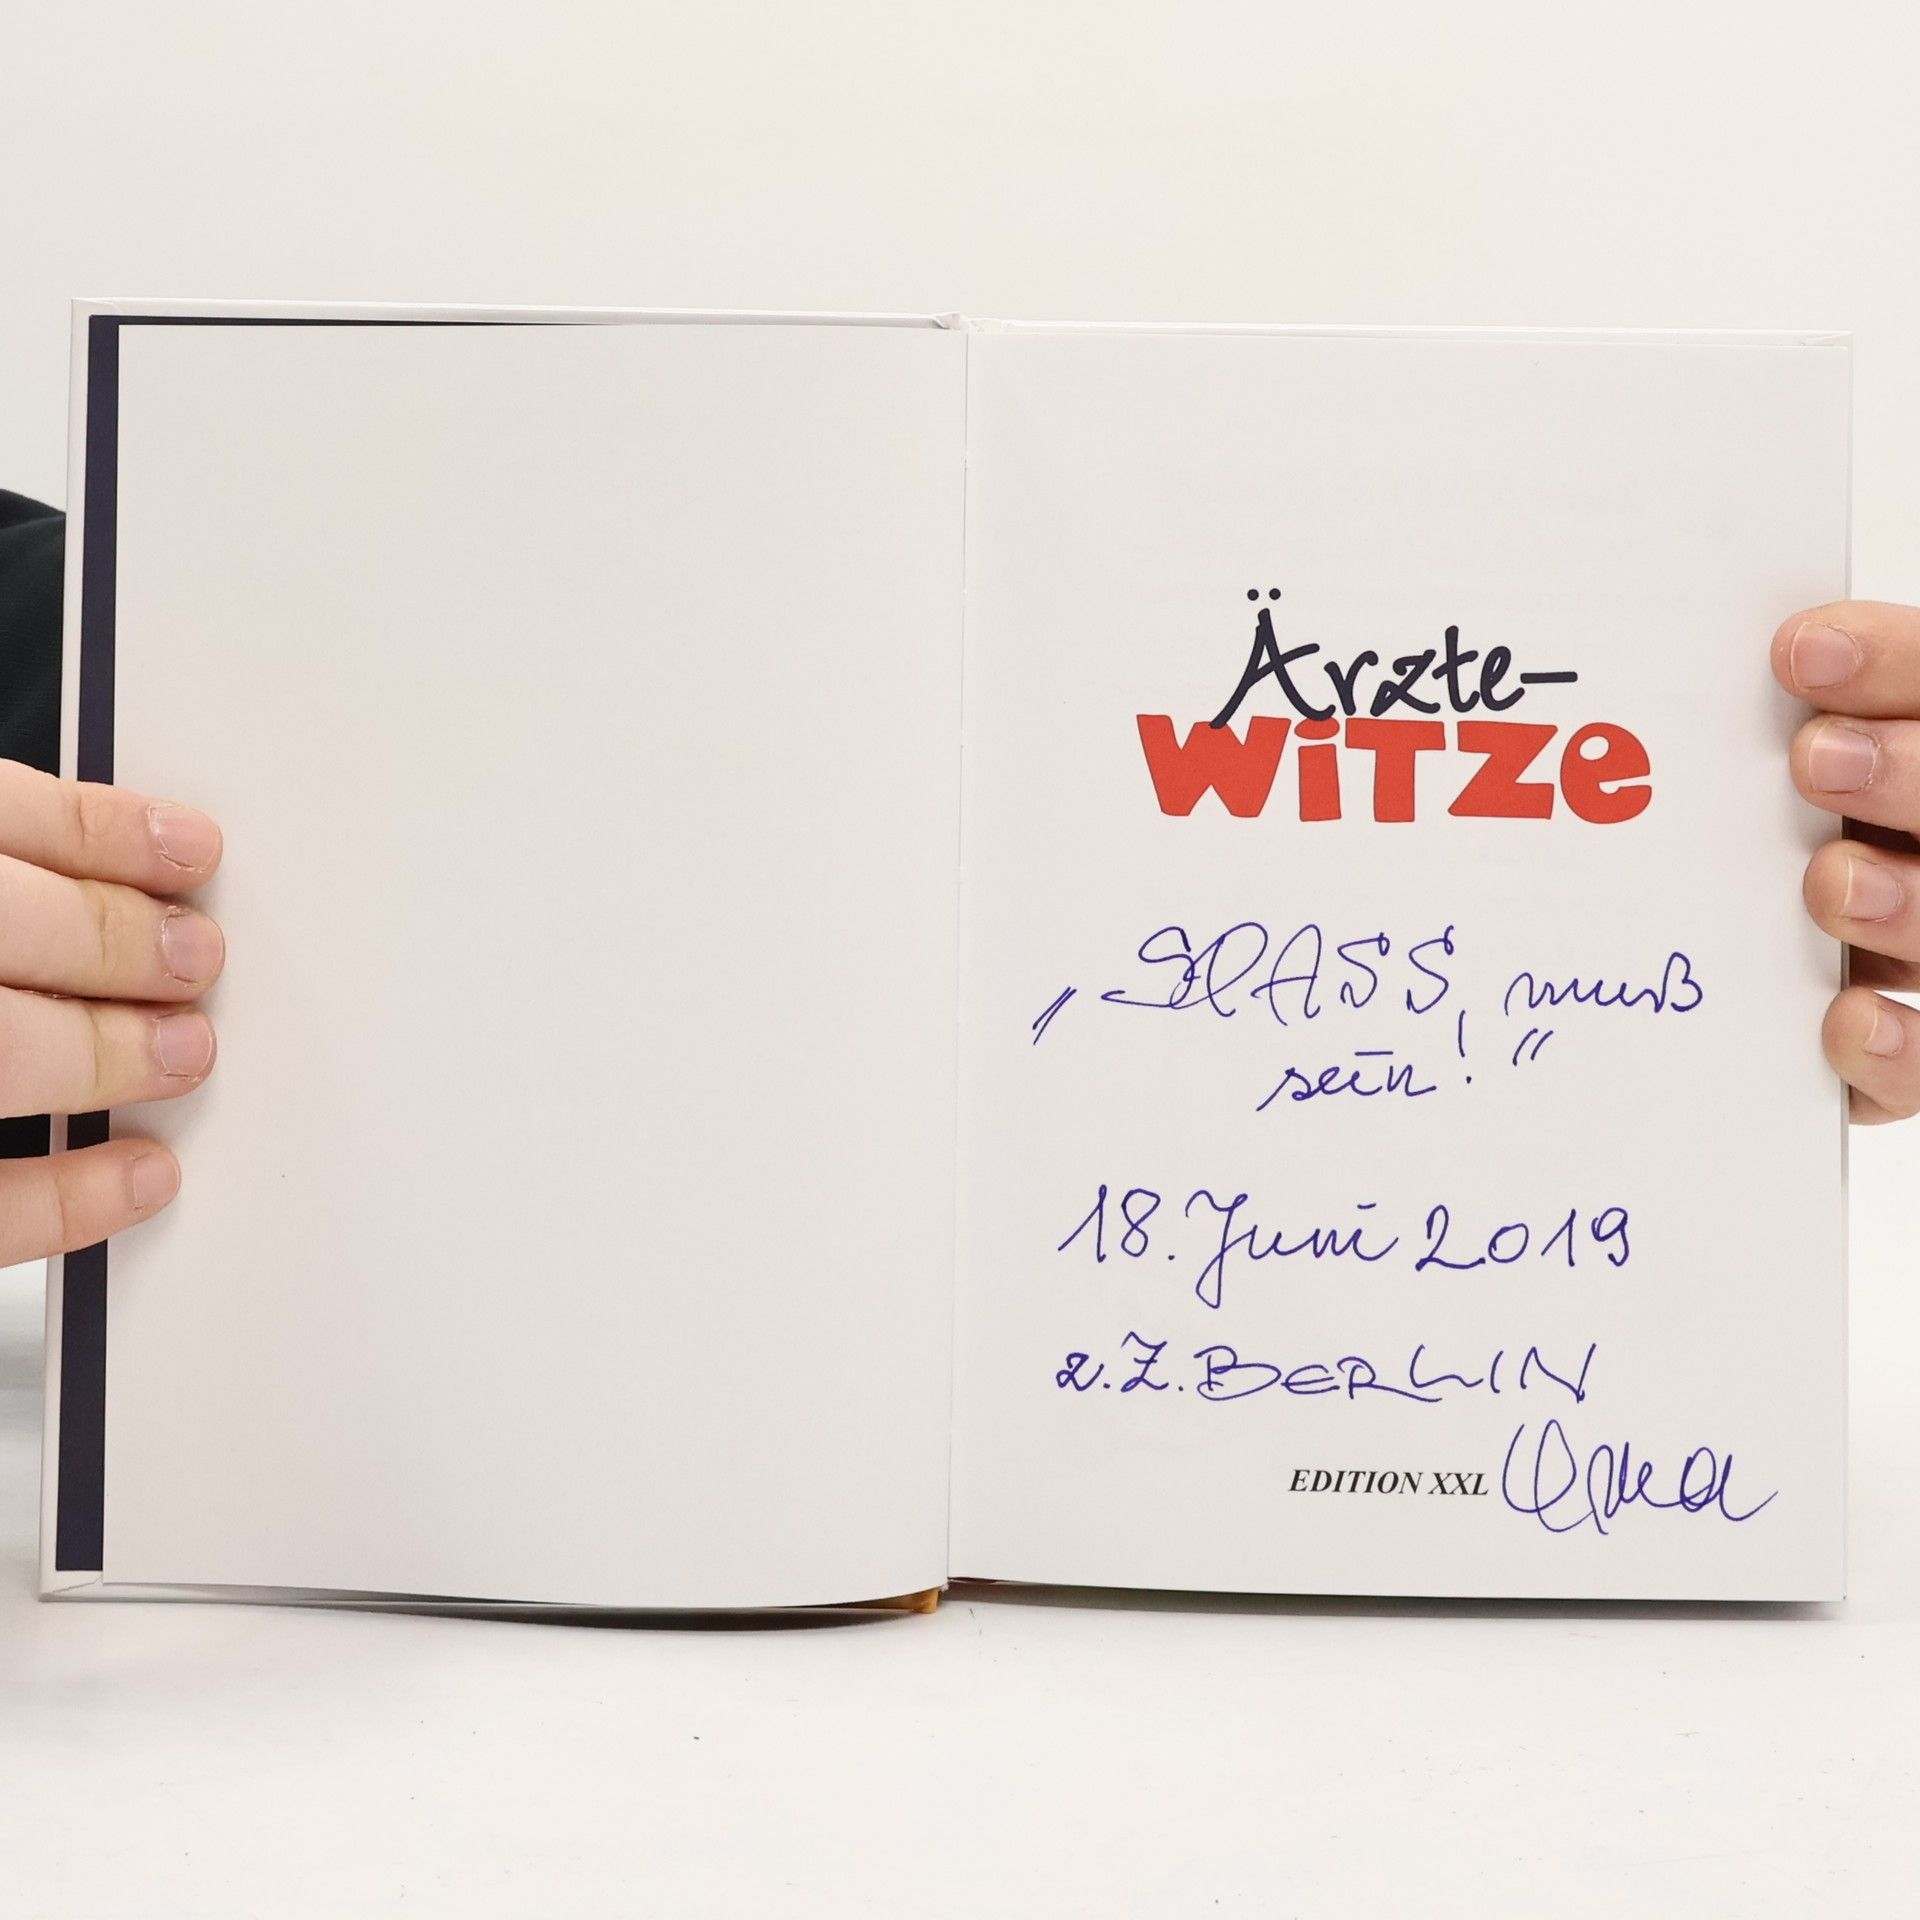 Ärzte-
WiTZe
„SPASS, muß
sein!"
18. Juni 2019
z.Z. BERLIN
EDITION XXL